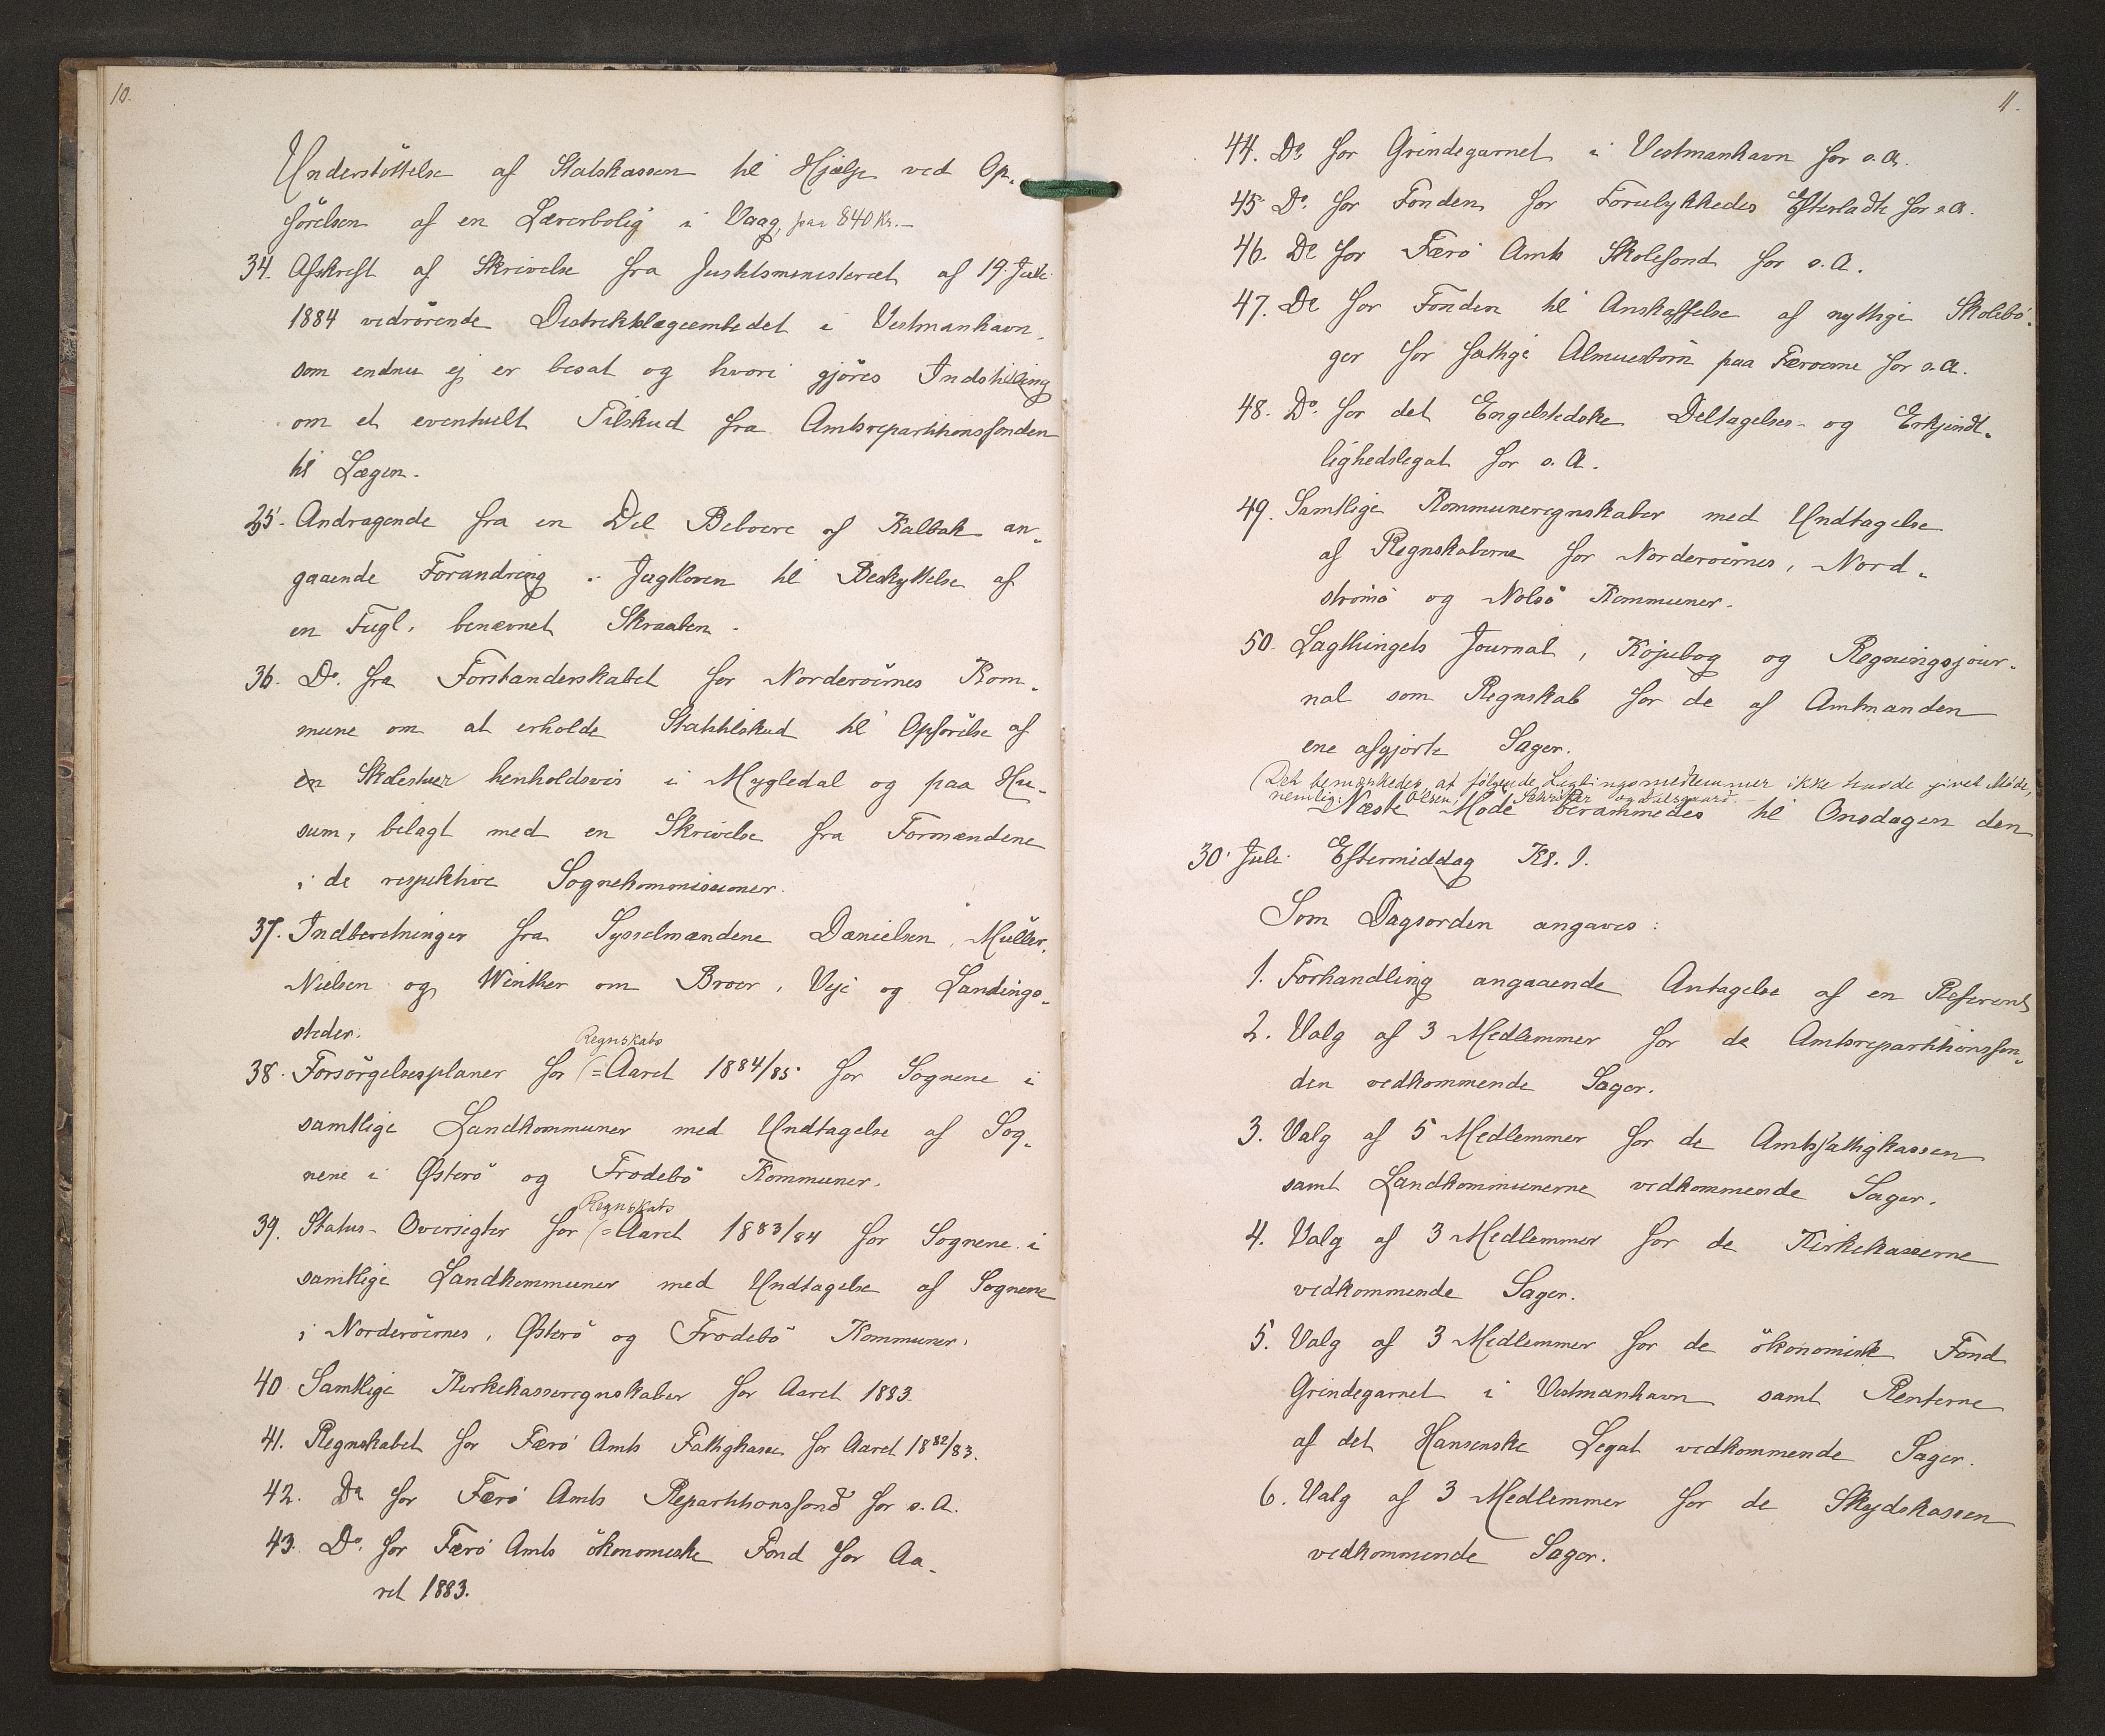 10.
Understøttelse af Statskassen til Hjælp ved Op-
førelsen af en Lærerbolig i Vaag, paa 840 Kr. –
34. Afskrift af Skrivelse fra Justitsministeriet af 19. Juli
1884 vedrørende Distriktslægeembedet i Vestmanhavn,
som endnu ej er besat og hvori gjøres Indstilling
om et eventuelt Tilskud fra Amtsrepartitionsfonden
til Lægen.
35. Andragende fra en Del Beboere af Kalbak an-
gaaende Forandring i Jagtloven til Beskyttelse af
en Fugl, benævnet Skraaben.
36. Do. fra Forstanderskabet for Norderøernes Kom-
mune om at erholde Statstilskud til Opførelse af
en Skolestuer henholdsvis i Mygledal og paa Hu-
sum, bilagt med en Skrivelse fra Formændene
i de respektive Sognekommissioner.
37. Indberetninger fra Sysselmændene Danielsen, Müller,
Nielsen og Winther om Broer, Veje og Landings-
steder.
Regnskabs
38. Forsørgelsesplaner for (=Aaret 1884/85 for Sognene i
samtlige Landkommuner med Undtagelse af Sog-
nene i Østerø og Frodebø Kommuner.
Regnskabs
39. Status-Oversigter for (=Aaret 1883/84 for Sognene i
samtlige Landkommuner med Undtagelse af Sognene
i Norderøernes, Østerø og Frodebø Kommuner.
40. Samtlige Kirkekasseregnskaber for Aaret 1883.
41. Regnskabet for Færø Amts Fattigkasse for Aaret 1882/83.
42. Do for Færø Amts Repartitionsfond for s. A.
43. Do. for Færø Amts økonomiske Fond for Aa-
ret 1883.
11.
44. Do. for Grindegarnet i Vestmanhavn for s. A.
45. Do. for Fonden for Forulykkedes Efterladte for s. A.
46. Do for Færø Amts Skolefond for s. A.
47. Do for Fonden til Anskaffelse af nyttige Skolebø-
ger for fattige Almuesbørn paa Færøerne for s. A.
48. Do. for det Engelstedske Deltagelses- og Erkjendt-
lighedslegat for s. A.
49. Samtlige Kommuneregnskaber med Undtagelse
af Regnskaberne for Norderøernes, Nord-
strømø og Nolsø Kommuner.
50. Lagthingets Journal, Kopiebog og Regningsjour-
nal som Regnskab for de af Amtmanden
ene afgjorte Sager.
(Det bemærkedes, at følgende Lagtingsmedlemmer ikke havde givet Møde,
nemlig: Olsen, Schrøter og Dalsgaard.
Næste Møde berammedes til Onsdagen den
30. Juli Eftermiddag Kl. 1.
Som Dagsorden angaves:
1. Forhandling angaaende Antagelse af en Referent
2. Valg af 3 Medlemmer for de Amtsrepartitionsfon-
den vedkommende Sager.
3. Valg af 5 Medlemmer for de Amtsfattigkassen
samt Landkommunerne vedkommende Sager.
4. Valg af 3 Medlemmer for de Kirkekasserne
vedkommende Sager.
5. Valg af 3 Medlemmer for de økonomisk Fond
Grindegarnet i Vestmanhavn samt Renterne
af det Hansenske Legat vedkommende Sager.
6. Valg af 3 Medlemmer for de Skydskassen
vedkommende Sager.